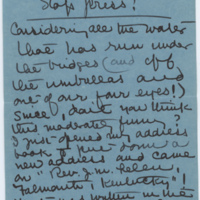 Stop press!
Considering all the water
that has run under
the bridges (and off
the umbrellas and
out of our fair eyes!)
since, don't you think
this moderately funny?
I just opened my address
book to put down a
new address and came
on "Rev. J. M. Helen,
Falmouth, Kentucky"!
that was written in the